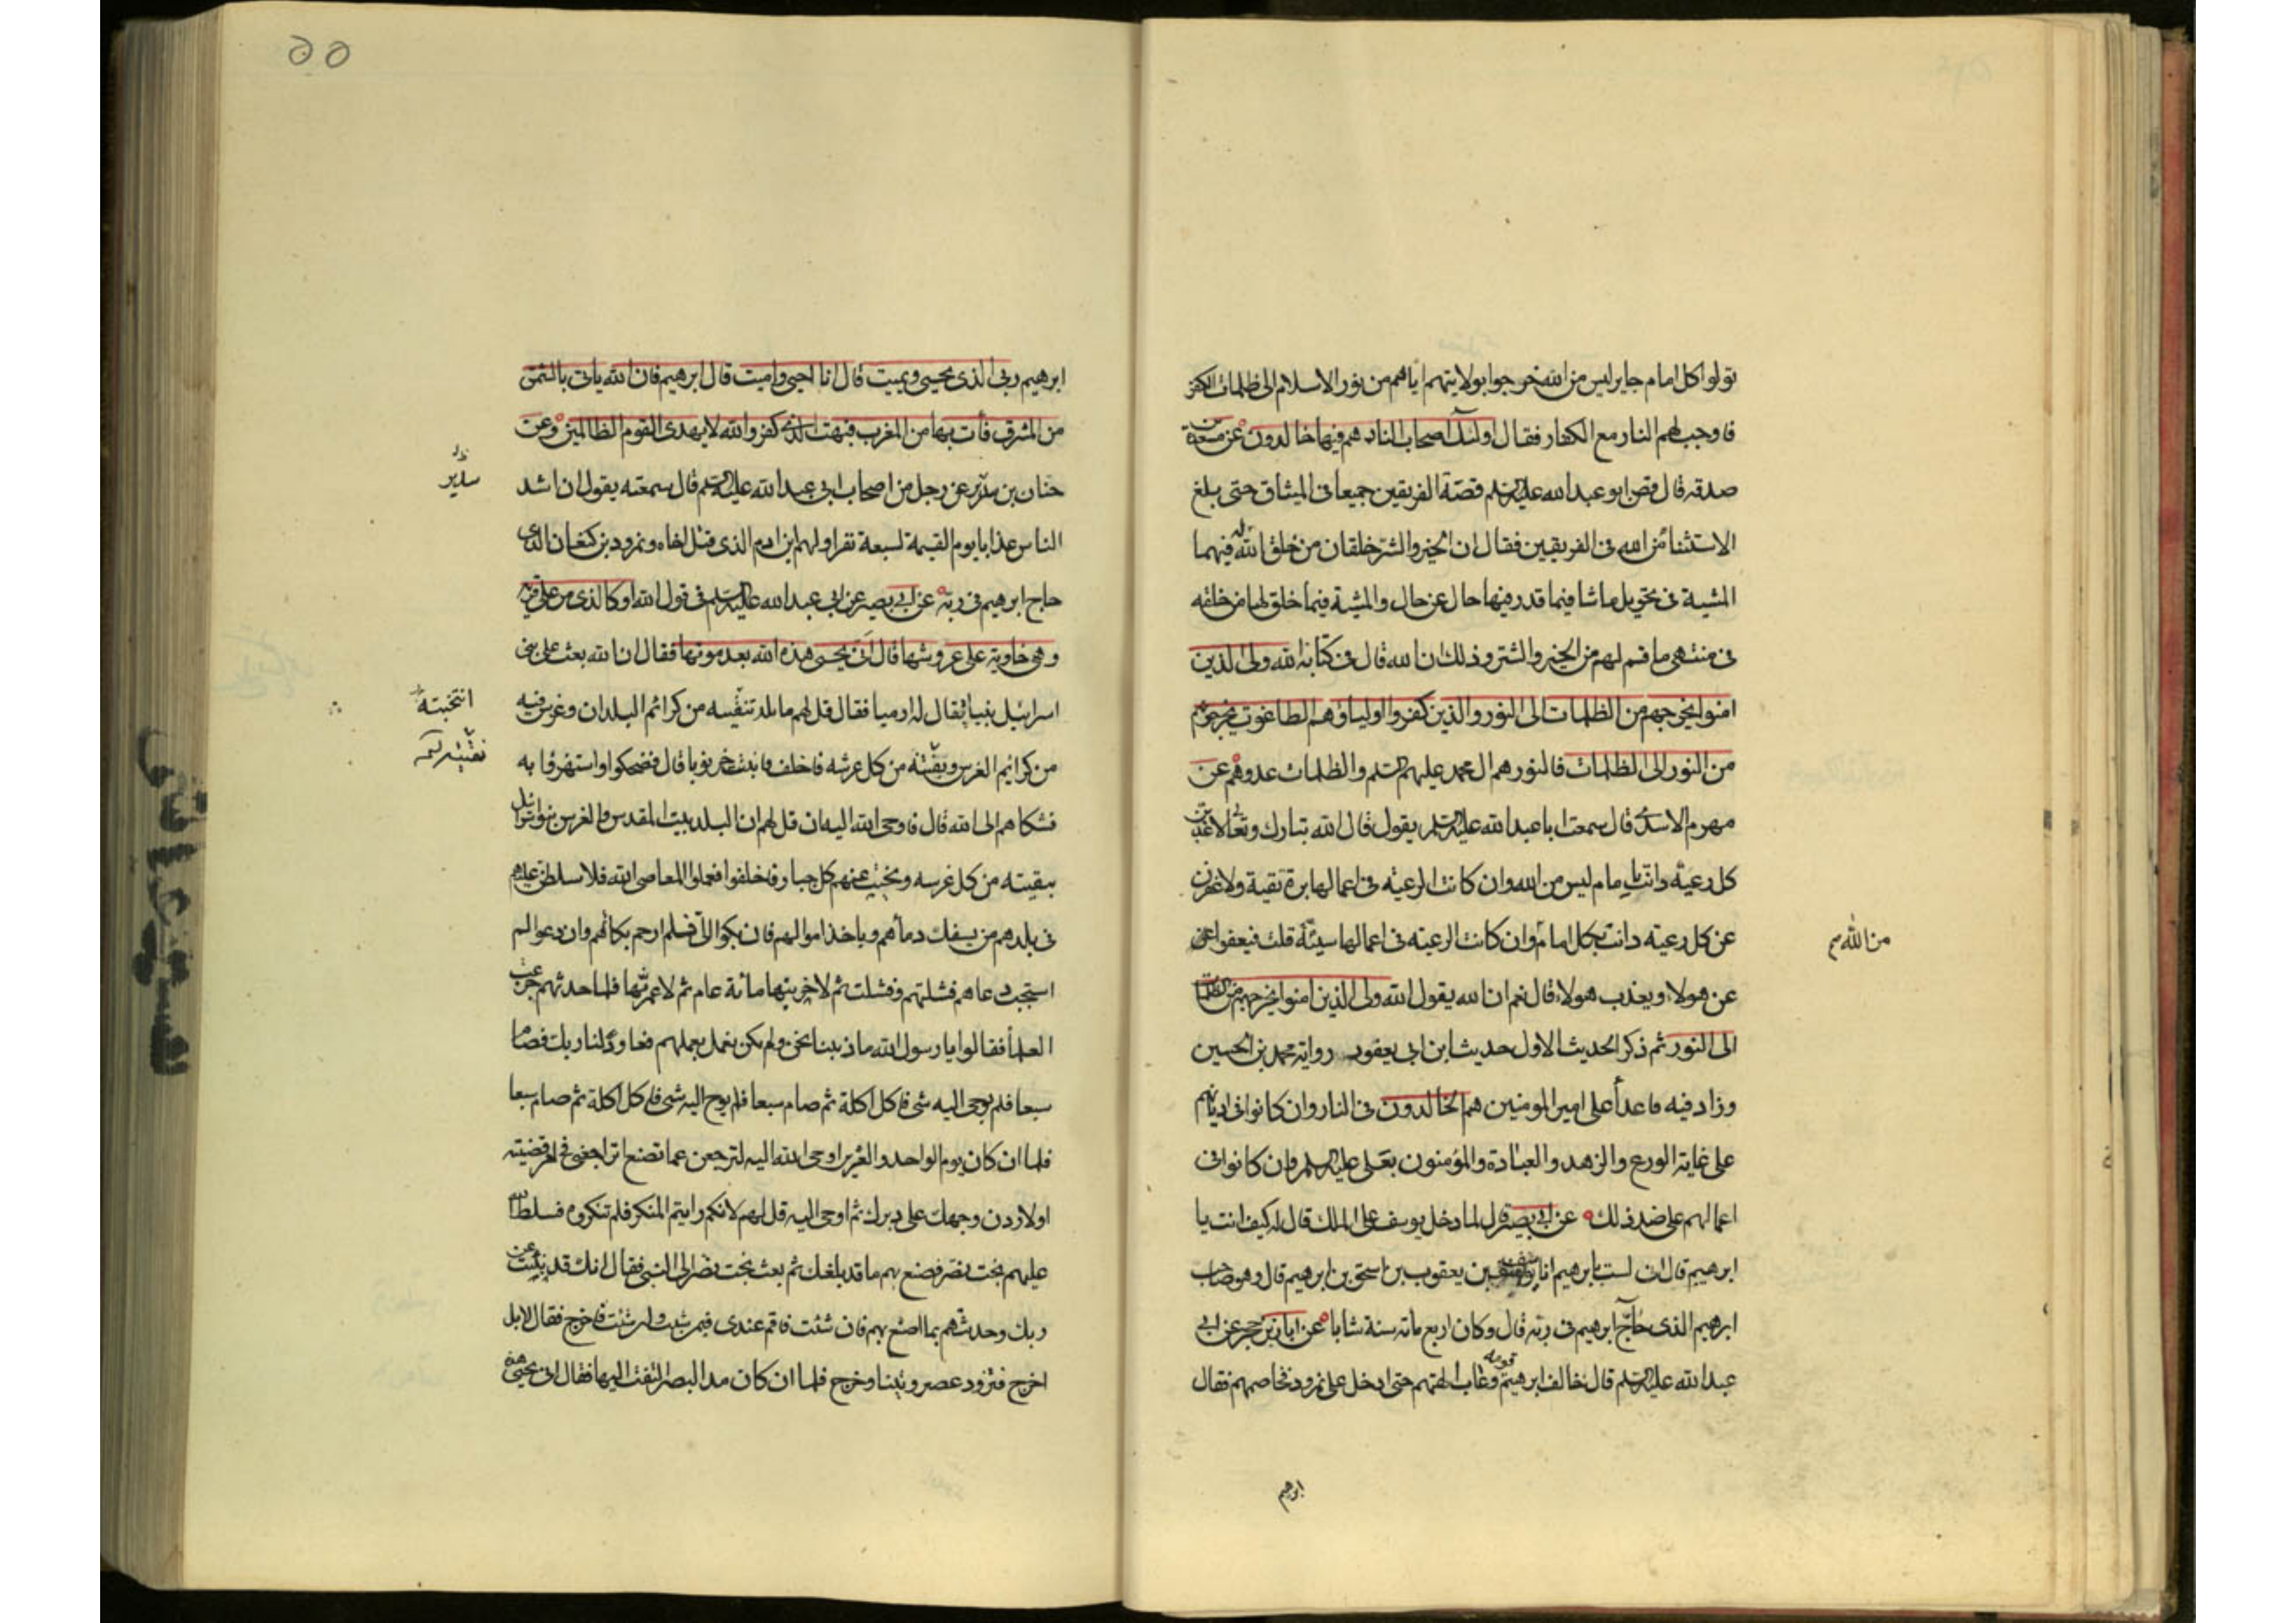 تولوا كل امام جاير ليس من الله خرجوا بولايتهم اياهم من نور الاسلام الى ظلمات الكفر
فاوجب لهم النار مع الكفار فقال اولئك اصحاب النار هم فيها خالدون عن مسعدة بن
صدقه قال قص ابو عبد الله عليه السلم قصة الفريقين جميعا فى الميثاق حتى بلغ
الاستثنا من الله فى الفريقين فقال ان الخير والشر خلقان من خلق الله له فيهما
المشية فى تحويل ماشا فيما قدر فيها حال عن حال والمشية فيما خلق لها من خلقه
فى منتهى ما قسم لهم من الخير والشر وذلك ان الله قال فى كتابه الله ولى الذين
امنوا يخرجهم من الظلمات الى النور والذين كفروا اولياؤهم الطاغوت يخرجونهم
من النور الى الظلمات فالنور هم ال محمد عليهم السلم والظلمات عدوهم عن
مهزم الاسدى قال سمعت ابا عبد الله عليه السلم يقول قال الله تبارك وتعالى لاعذبن
كل رعية دانت بامام ليس من الله وان كانت الرعية فى اعمالها برة تقية ولاغفرن
عن كل رعيته دانت بكل امام وان كانت الرعيته فى اعمالها سيئة قلت فيعفوا
من الله
عن هولاء ويعذب هولاء قال نعم ان الله يقول الله ولى الذين امنوا يخرجهم من الظلمات
الى النور ثم ذكر الحديث الاول حديث ابن ابى يعفور رواية محمد بن الحسين
وزاد فيه فاعدأ على امير المومنين هم الخالدون فى النار وان كانوا فى اديانهم
على غاية الورع والزهد والعبادة والمؤمنون بعلى عليه السلم وان كانوا فى
اعمالهم على ضد ذلك عن ابى بصير قال لما دخل يوسف على الملك قال له كيف انت يا
ابرهيم قال انى لست بابرهيم انا يوسف بن يعقوب بن اسحق بن ابرهيم قال وهو صاحب
ابرهيم الذى حاج ابرهيم فى ربه قال وكان اربع مائه سنة شابا عن ابان بن حجر عن ابى
عبد الله عليه السلم قال خالف ابرهيم قومه وعاب الهتهم حتى ادخل على نمرود فخاصمهم فقال
ابرهيم
٥٥
ابرهيم ربى الذى يحيى ويميت قال انا احيى واميت قال ابرهيم فان الله ياتى بالشمس
من المشرق فأت بها من المغرب فبهت الذى كفر والله لا يهدى القوم الظالمين وعن
حنان بن سدير عن رجل من اصحاب ابى عبد الله عليه السلم قال سمعته يقول ان اشد
سدير
الناس عذابا يوم القيمة لسبعة نفر اولهم ابن ادم الذى قتل اخاه ونمرود بن كنعان الذى
حاج ابرهيم فى ربه عن ابى بصير عن ابى عبد الله عليه السلم فى قول الله او كالذى مر على قرية
وهى خاوية على عروشها قال انى يحيى هذه الله بعد موتها فقال ان الله بعث على بنى
اسرائيل نبيا يقال له ارميا فقال قل لهم ما بلد تنقيته من كرائم البلدان وغرس فيه
انتخبته
من كرائم الغرس ونقيته من كل غرسه فاخلف فانبت خرنوبا قال فضحكوا واستهزؤا به
فشكاهم الى الله قال فاوحى الله اليه ان قل لهم ان البلد بيت المقدس والغرس بنو اسرائيل
نقيته من كل غرسه ونحيت عنهم كل جبار فاخلفوا فعملوا المعاصى الله فلاسلطن عليهم
فى بلدهم من يسفك دمائهم وياخذ اموالهم فان بكوا الى فلم ارحم بكائهم وان دعوا لم
استجب دعاهم فشلتهم وفشلت ثم لاخربنها مائة عام ثم لاعمرنها فلما حدثهم جزعت
العلما فقالوا يا رسول الله ما ذنبنا نحن ولم نكن نعمل بعملهم فعاود لنا ربك فصام
سبعا فلم يوحى اليه شى فاكل اكلة ثم صام سبعا فلم يوح اليه شى فاكل اكلة ثم صام سبعا
فلما ان كان يوم الواحد والعشرين اوحى الله اليه لترجعن عما تصنع اتراجعنى فى امر قضيته
او لاردن وجهك على دبرك ثم اوحى اليه قل لهم لانكم رايتم المنكر فلم تنكروه فسلط الله
عليهم بخت نصر فصنع بهم ما قد بلغك ثم بعث بخت نصر الى النبى فقال انك قد نبئت عن
ربك وحدثتهم بما اصنع بهم فان شئت فاقم عندى فيمن شئت وان شئت فاخرج فقال لا بل
اخرج فتزود عصيرو تينا وخرج فلما ان كان مد البصر التفت اليها فقال انى يحيى هذه